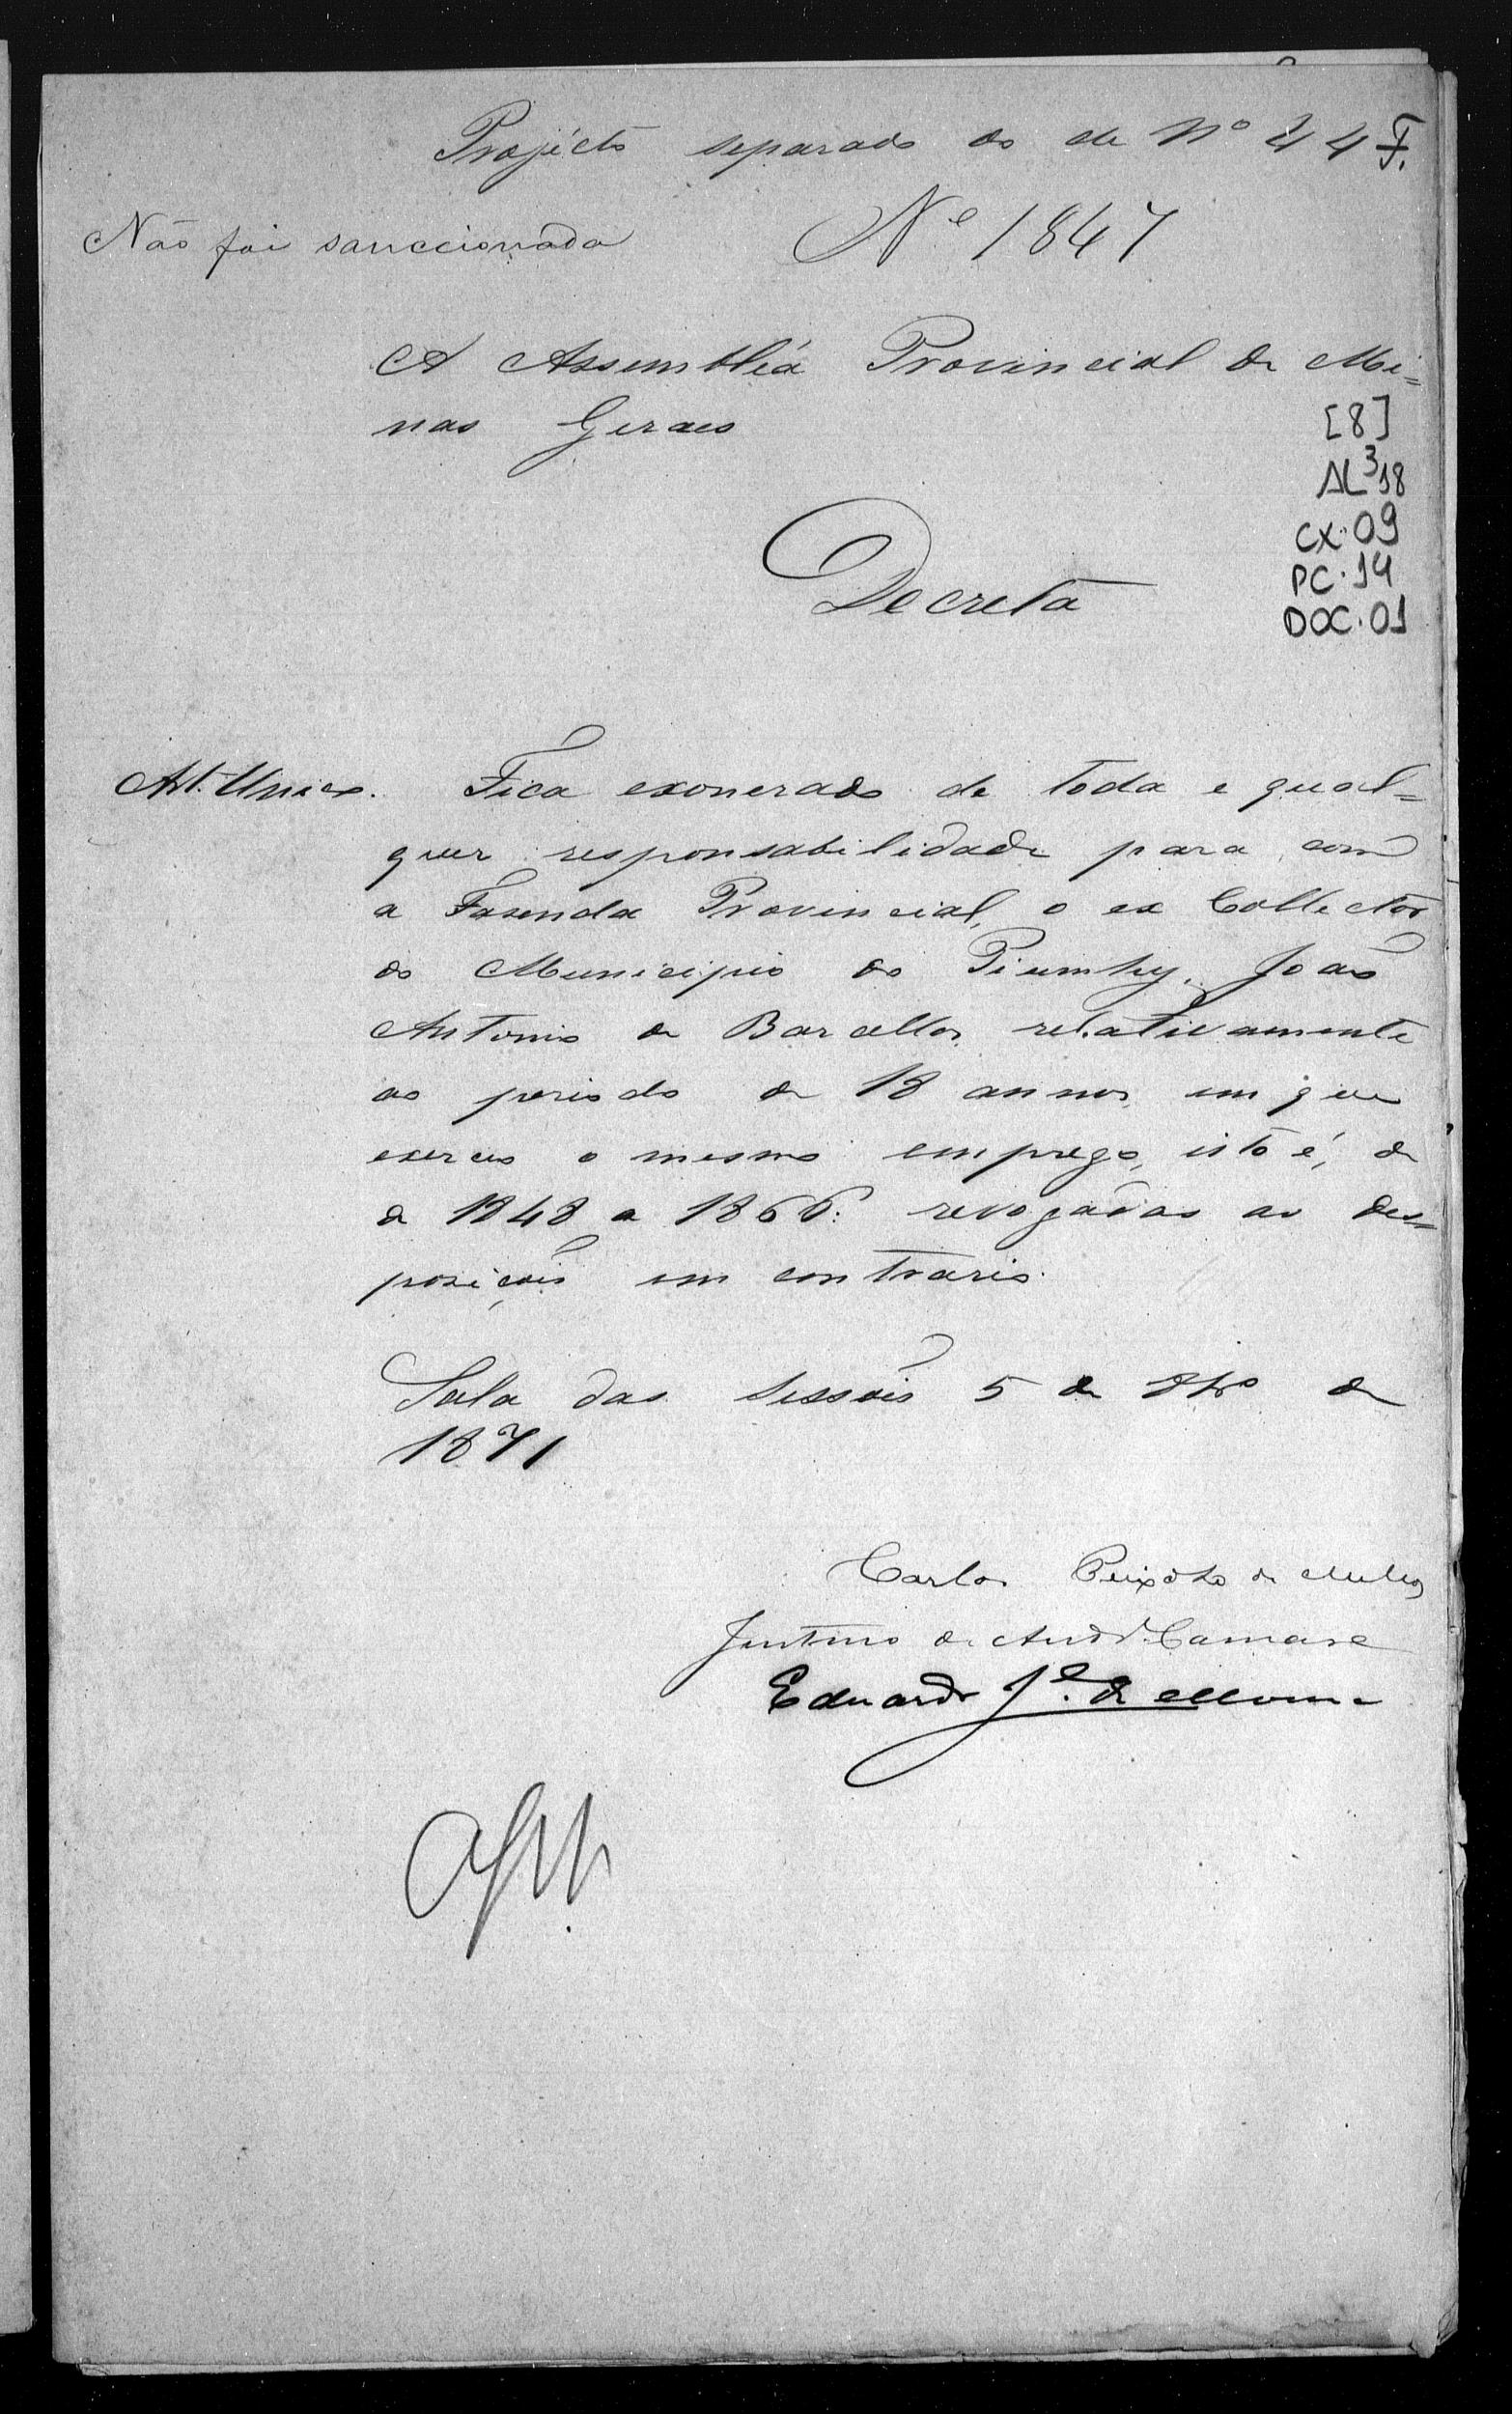 Projécto separado do de Nº 44 F.
Não foi sanccionada
Nº 1847
A Assembléa Provincial de Mi=
nas Geraes
[8]
AL³18
CX.09
PC.14
DOC.01
Decreta
Art. Unico. Fica exonerado de toda e qual=
quer responsabilidade para com
a Fasenda Provincial, o ex Collector
do Municipio do Piumhy, João
Antonio de Barcellos relativamente
ao periodo de 18 annos em que
exerceo o mesmo emprego, isto é, de
de 1848 a 1866: revogadas as des=
posições em contrario.
Sala das sessões 5 de de
1871
Carlos Peixoto de Mello
Justino de Andr.e Camara
Eduardo J.e de Moura